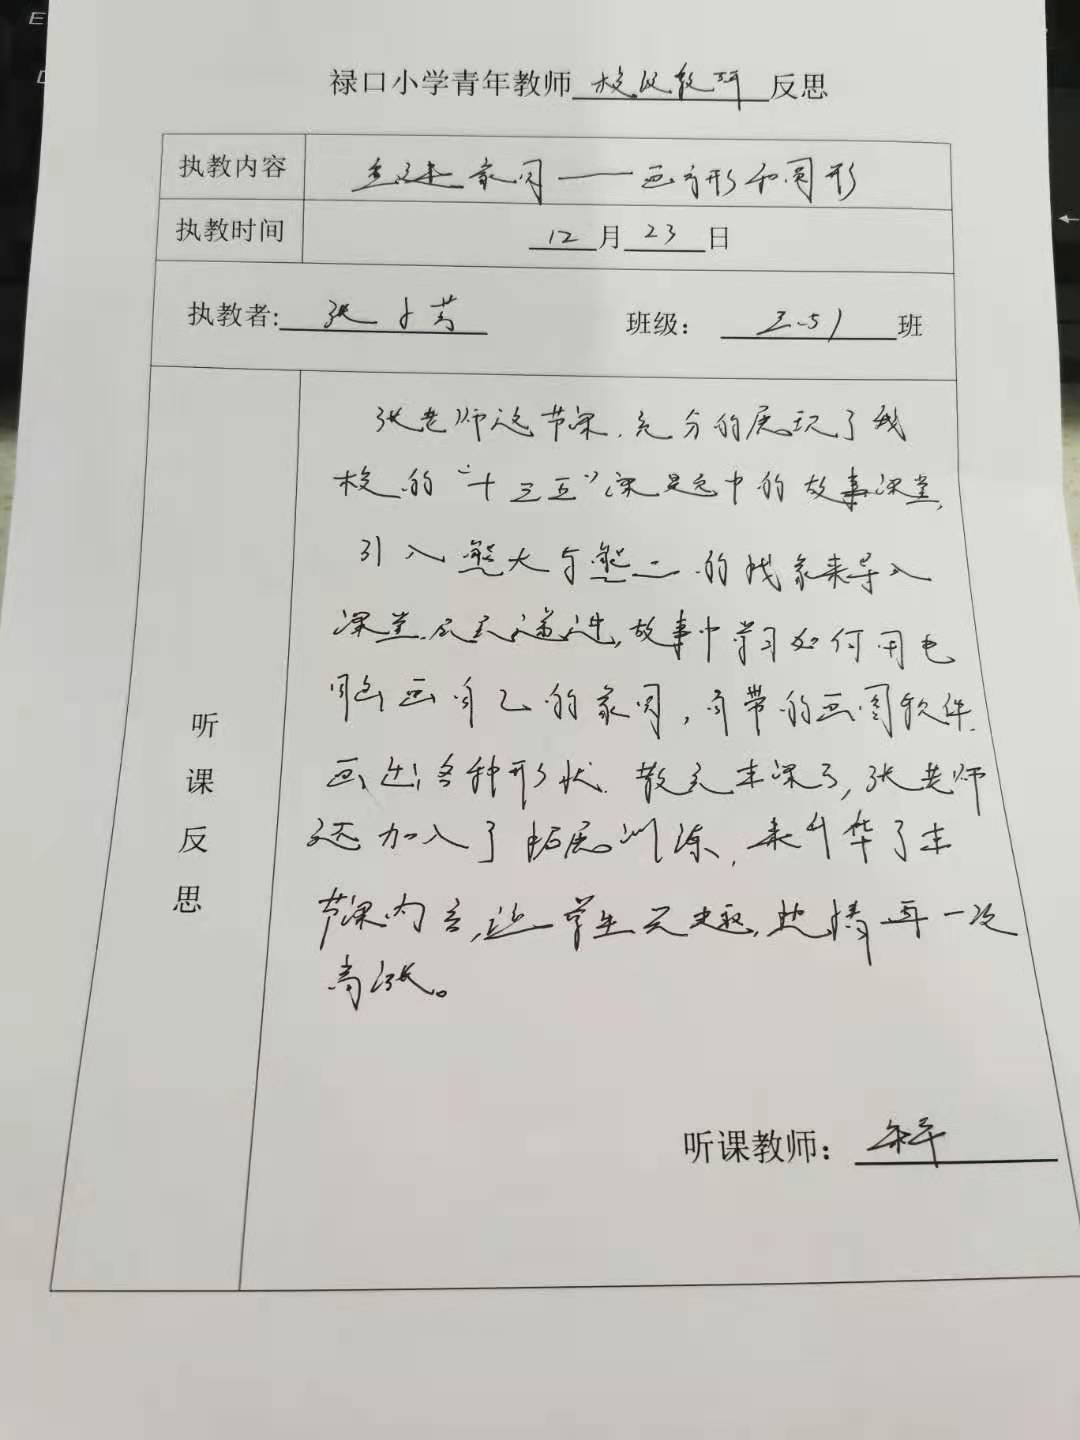 禄口小学青年教师 校区教研 反思
执教内容 重建家园——画方形和圆形
执教时间 12月23日
执教者: 张 班级: 三.5) 班
听课反思
张老师这节课，充分的展现了我
校的“十三五”课题中的故事课堂，
引入熊大与熊二的找家来导入
课堂，层层递进，故事中学习如何用电
脑画自己的家园，自带的画图软件
画出各种形状。散完本课了，张老师
还加入了拓展训练，来升华了本
节课内容，让学生 热情再一次
高涨。
听课教师：